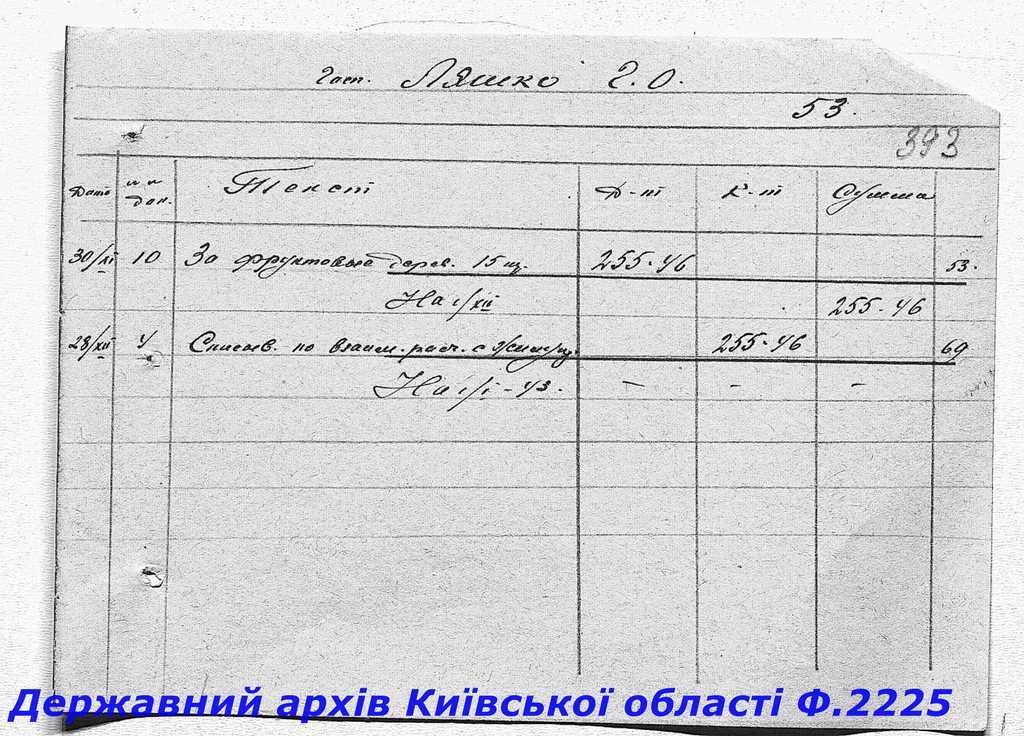 Госп. Ляшко Г. О.
53.
393
Дата № № док. Текст Д-т К-т Сумма
30/XI 10 За фруктовые дерев. 15 шт. 255-46 53.
На 1/XII 255-46
28/XII 4 Списыв. по взаим. расч. с 255-46 69
На 1/I - 43. - - -
Державний архів Київської області Ф.2225